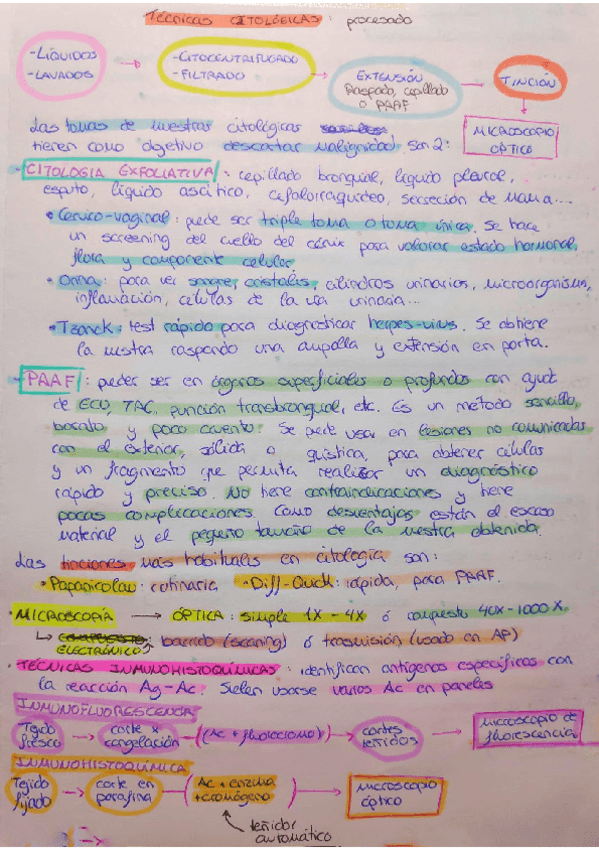 TÉCNICAS CITOLÓGICAS: procesado
-LÍQUIDOS
-LAVADOS
-CITOCENTRIFUGADO
-FILTRADO
EXTENSIÓN
Raspado, cepillado
o PAAF
TINCIÓN
MICROSCOPIO
ÓPTICO
Las tomas de muestras citológicas
tienen como objetivo descartar malignidad, son 2:
-CITOLOGIA EXFOLIATIVA: cepillado bronquial, líquido pleural,
esputo, líquido ascítico, cefalorraquídeo, secreción de mama...
• Cervico-vaginal: puede ser triple toma o toma única. Se hace
un screening del cuello del cérvix para valorar estado hormonal,
flora y componente celular.
• Orina: para ver sangre, cristales, cilindros urinarios, microorganismos,
inflamación, células de la vía urinaria...
• Tzanck: test rápido para diagnosticar herpes-virus. Se obtiene
la muestra raspando una ampolla y extensión en porta.
-PAAF: puede ser en órganos superficiales o profundos con ayuda
de ECO, TAC, punción transbronquial, etc. Es un método sencillo,
barato y poco cruento. Se puede usar en lesiones no comunicadas
con el exterior, sólida o quística, para obtener células
y un fragmento que permita realizar un diagnóstico
rápido y preciso. No tiene contraindicaciones y tiene
pocas complicaciones. Como desventajas están el escaso
material y el pequeño tamaño de la muestra obtenida.
Las tinciones más habituales en citología son:
• Papanicolau: rutinaria • Diff-Quick: rápida, para PAAF.
• MICROSCOPÍA → ÓPTICA: simple 1X-4X ó compuesto 40X-1000X.
↳ ELECTRÓNICO: barrido (scaning) ó trasmisión (usado en AP)
• TÉCNICAS INMUNOHISTOQUÍMICAS: identifican antígenos específicos con
la reacción Ag-Ac. Suelen usarse varios Ac en paneles
INMUNOFLUORESCENCIA
Tejido
fresco
corte x
congelación
(Ac + fluorocromo)
cortes
teñidos
microscopio de
fluorescencia
INMUNOHISTOQUÍMICA
Tejido
fijado
corte en
parafina
Ac + enzima
+ cromógeno
microscopio
óptico
teñidor
automático